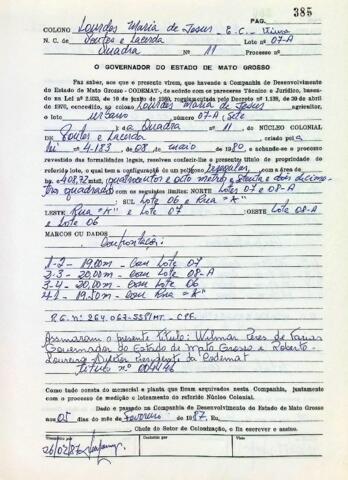 PAG. 385
COLONO Lourdes Maria de Jesus - E.C. - Viuva
N. C. de Pontes e Lacerda Lote nº 07-A
Quadra Nº 11 Processo nº
O GOVERNADOR DO ESTADO DE MATO GROSSO
Faz saber, aos que o presente virem, que havendo a Companhia de Desenvolvimento
do Estado de Mato Grosso - CODEMAT-, de acordo com os pareceres Técnico e Jurídico, basea-
dos na Lei nº 2.933, de 10 de junho de 1969, regulamentada pelo Decreto nº 1.138, de 20 de abril
de 1970, concedido ao colono Lourdes Maria de Jesus agricultor,
o lote urbano número 07-A, Sete
a Quadra nº 11, DO NÚCLEO COLONIAL
DE Pontes e Lacerda criado pela
lei nº 4.183, de 08 de maio de 1980 e achando-se o processo
revestido das formalidades legais, resolveu conferir-lhe o presente título de propriedade do
referido lote, o qual tem a configuração de um polígono
de 408,72 m², quatrocentos e oito metros e setenta e dois decime-
tros quadrados com os seguintes limites: NORTE Lotes 07 e 08-A
SUL Lote 06 e Rua "K"
LESTE Rua "K" e Lote 07 OESTE Lote 08-A
e Lote 06
MARCOS OU DADOS
Confrontação:
1-2 - 19,00m - Com Lote 07
2-3 - 20,00m - Com Lote 08-A
3-4 - 20,00m - Com Lote 06
4-1 - Com Rua "K"
R.G. nº 264.063-SSP/MT. - CPF.
Assinaram o presente Título: Wilmar Peres de Farias
Governador do Estado de Mato Grosso e Roberto
Loureiro Diretor Presidente da Codemat
Título nº
Como tudo consta do memorial e planta que ficam arquivados nesta Companhia, juntamente
com o processo de medição e loteamento do referido Núcleo Colonial.
Dado e passado na Companhia de Desenvolvimento do Estado de Mato Grosso
aos 05 dias do mês de Fevereiro de 1987. Eu,
Chefe do Setor de Colonização, o fiz escrever e assino.
26/02/87